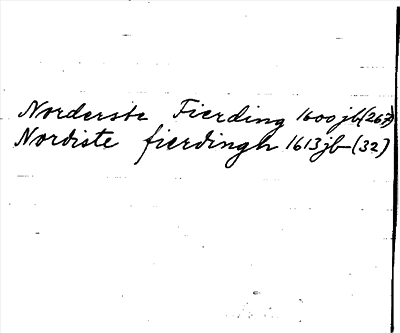 Norderste Fierding 1600 jb (267)
Nordiste fierdingh 1613 jb (32)